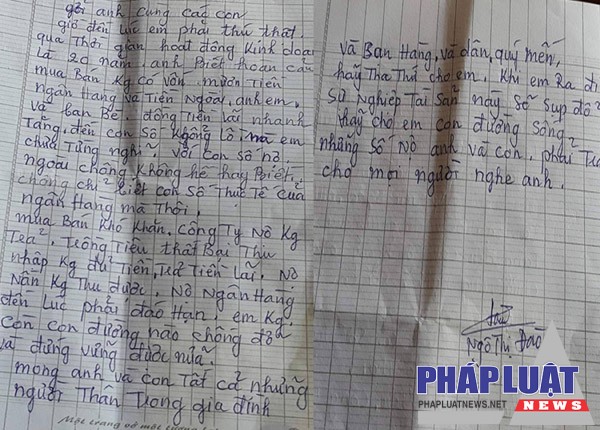 gởi anh cùng các con
giờ đến lúc em phải thú thật.
qua Thời gian hoạt động Kinh doanh
Là 20 năm. anh Biết hoàn cảnh
mua Bán Kg có Vốn, mượn Tiền
ngân Hàng Và Tiền Ngoài, anh em,
và bạn Bè, đồng Tiền lãi nhanh
Tăng, đến con số Khổng Lồ. mà em
chưa Từng nghĩ với con số nợ
ngoài chồng không hề hay Biết,
chồng chỉ biết con số Thực Tế của
ngân Hàng mà Thôi.
mua Bán khó khăn, công Ty Nợ Kg
Trả, Trồng Tiêu thất Bại Thu
nhập Kg đủ Tiền, Trả Tiền Lãi. Nợ
Nần Kg Thu được. Nợ Ngân Hàng
đến Lúc phải đáo Hạn, em Kg
còn con đường nào chống đỡ
và đứng vững được nữa.
mong anh và con Tất cả những
người Thân Trong gia đình
và Bạn Hàng, và dân, quý mến,
hãy Tha Thứ cho em. Khi em Ra đi
sự Nghiệp Tài Sản này sẽ sụp đổ
hãy cho em con đường sống
những số Nợ anh và con, phải Trả
cho mọi người nghe anh.
Ngô Thị Đào
PHÁP LUẬT
PHAPLUATNEWS.NET NEWS